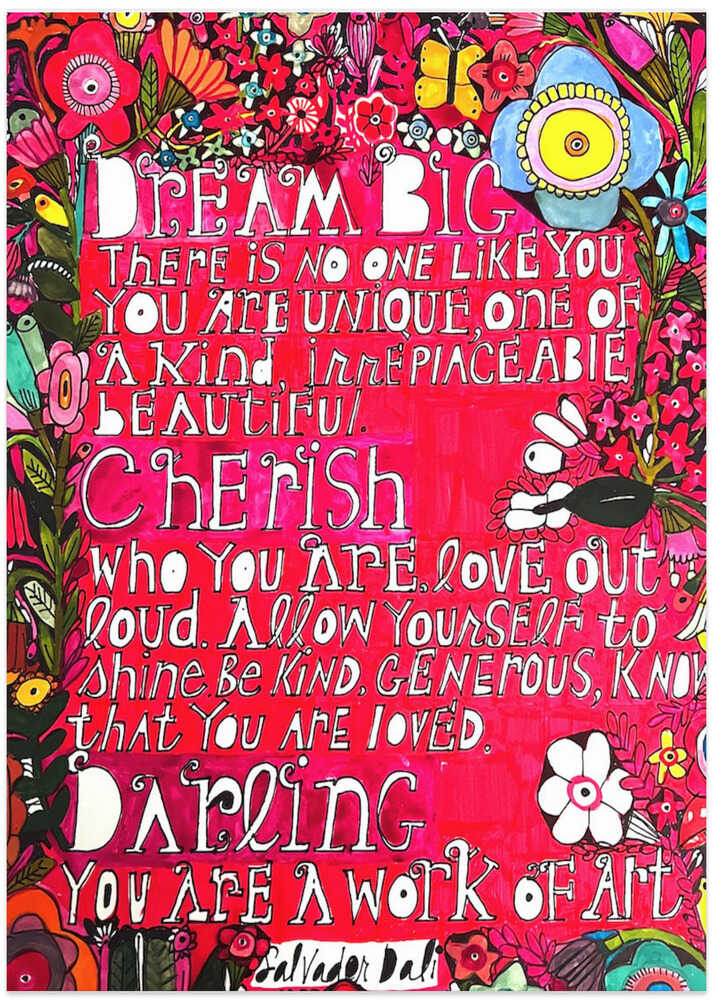 DREAM BIG
THERE IS NO ONE LIKE YOU
YOU ARE UNIQUE, ONE OF
A KIND, IRREPLACEABLE
BEAUTIFUL.
CHERISH
WHO YOU ARE. LOVE OUT
LOUD. ALLOW YOURSELF to
shine. Be KIND, GENEROUS, KNOW
that YOU ARE LOVED.
DARLING
YOU ARE A WORK OF ART
Salvador Dali